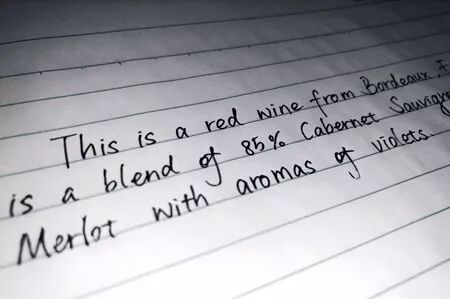 This is a red wine from Bordeaux, F
is a blend of 85% Cabernet Sauvign
Merlot with aromas of violets.